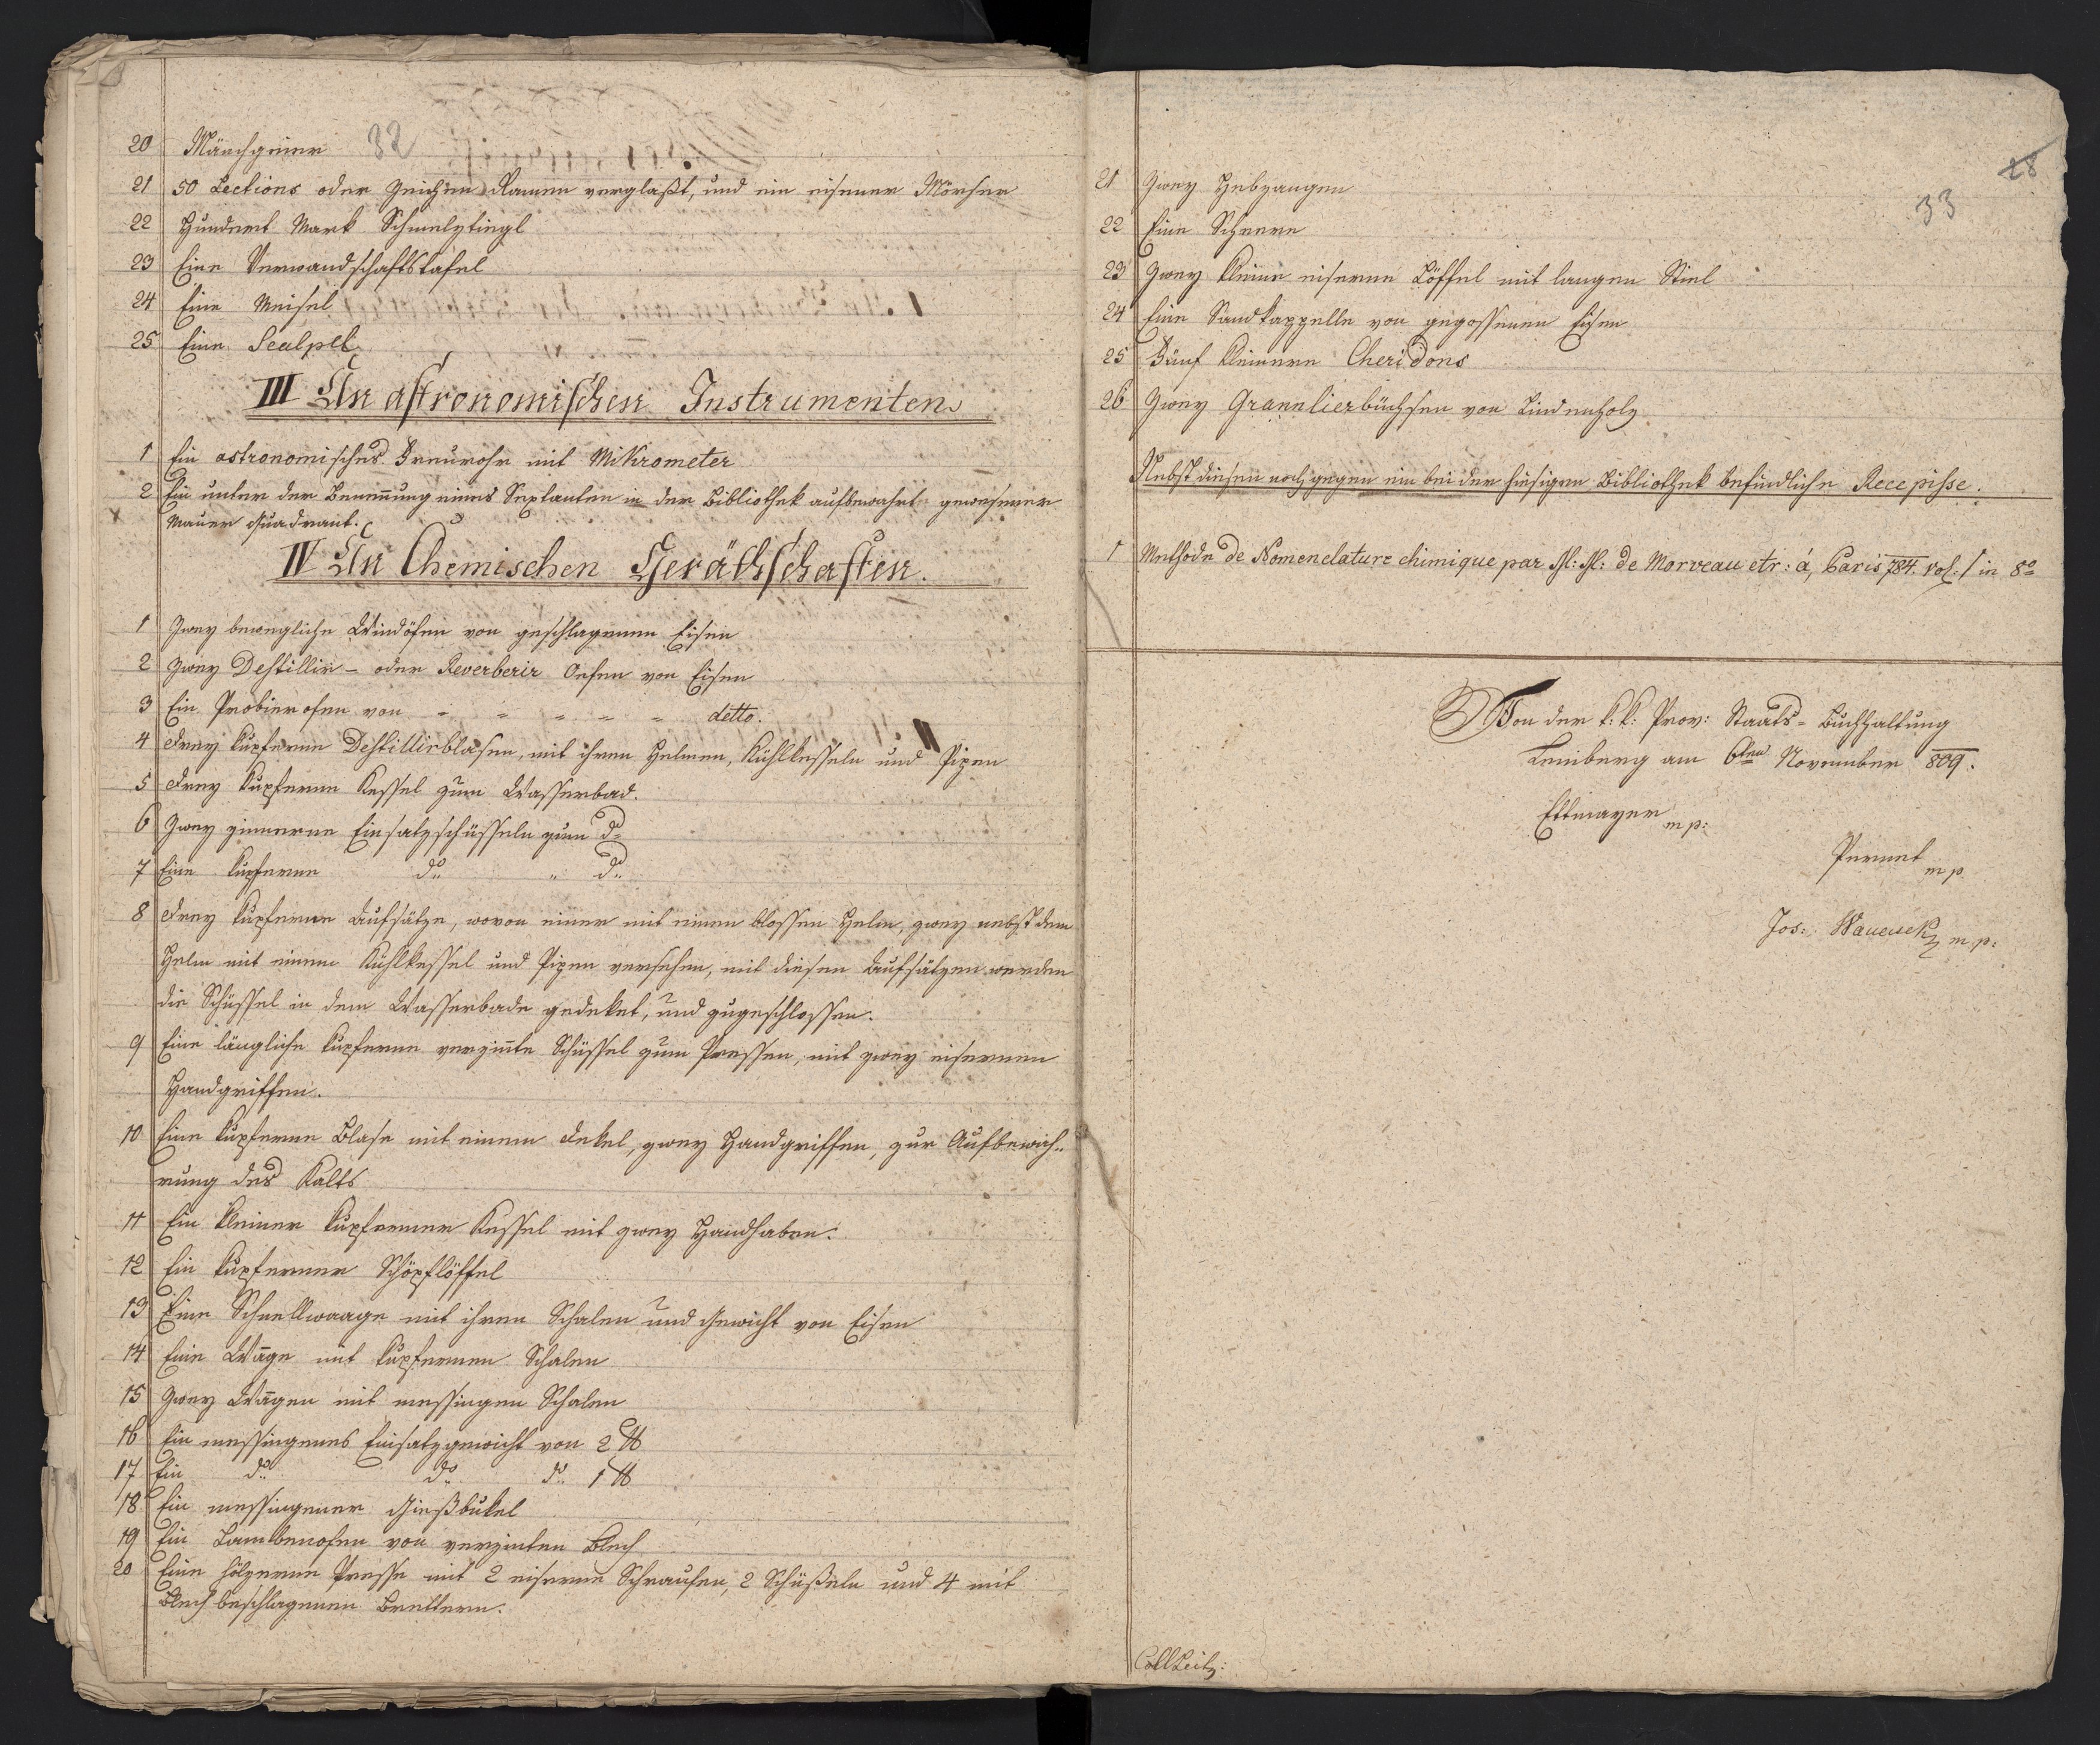 32
20 Mönchgeier
21 50 Lections oder Zeichen Ramen verglaßt, und ein eisener Mörser
22 Hundert Mark Schmelztiegl
23 Eine Verwandschaftstafel
24 Eine Meisel
25 Eine Scalpel
III An astronomischen Instrumenten
1 Ein astronomisches Fernrohr mit Mikrometer
2 Ein unter der Benennung eines Sextanten in der Bibliothek aufbewahrt gewesener
Mauer Quadrant.
IV An Chemischen Geräthschaften.
1 Zwey bewegliche Windöfen von geschlagenem Eisen
2 Zwey Destillir- oder Reverberir Oefen von Eisen
3 Ein Probierofen von = = = = = detto.
4 Drey kupferne Destillirblasen, mit ihren Helmen, Kühlkesseln und Pipen
5 Drey kupferne Kessel zum Wasserbad.
6 Zwey zinnerne Einsatzschüsseln zum do
7 Eine kupferne do " do
8 Drey kupferne Aufsätze, wovon einer mit einem blossen Helm, zwey nebst dem
Helm mit einem Kühlkessel und Pipen versehen, mit diesen Aufsätzen werden
die Schüssel in dem Wasserbade gedeket, und zugeschlossen.
9 Eine längliche kupferne verzinte Schüssel zum Pressen, mit zwey eisernen
Handgriffen.
10 Eine kupferne Blase mit einem Dekel, zwey Handgriffen, zur Aufbewah-
rung des Kalks
11 Ein kleiner kupferner Kessel mit zwey Handhaben.
12 Ein kupferner Schöpflöffel
13 Eine Schnellwaage mit ihren Schalen und Gewicht von Eisen
14 Eine Wage mit kupfernen Schalen
15 Zwey Wagen mit messingen Schalen
16 Ein messingenes Einsatzgewicht von 2 ℔
17 Ein do do do 1 ℔
18 Ein messingener Gießbukel
19 Ein Lambenofen von verzinten Blech
20 Eine hölzerne Presse mit 2 eiserne Schraufen, 2 Schüßeln und 4 mit
Blech beschlagenen Brettern.
28
33
21 Zwey Hebzangen
22 Eine Scheere
23 Zwey kleine eiserne Löffel mit langen Stiel
24 Eine Sandkappelle von gegossenen Eisen
25 Fünf kleinere Cheridons
26 Zwey Granulierbüchsen von Lindenholz
Nebst diesen noch gegen ein bei der hiesigen Bibliothek befindliche Recepisse.
1 Methode de Nomenclature chimique par M: M: de Morveau etr: á, Paris 784. vol. 1 in 8o
Von der k: k: Prov: Staats-Buchhaltung
Lemberg am 6ten November 809.
Ettmayer mp:
Pernet mp
Jos: Wauruck mp:
Coll Leitz: